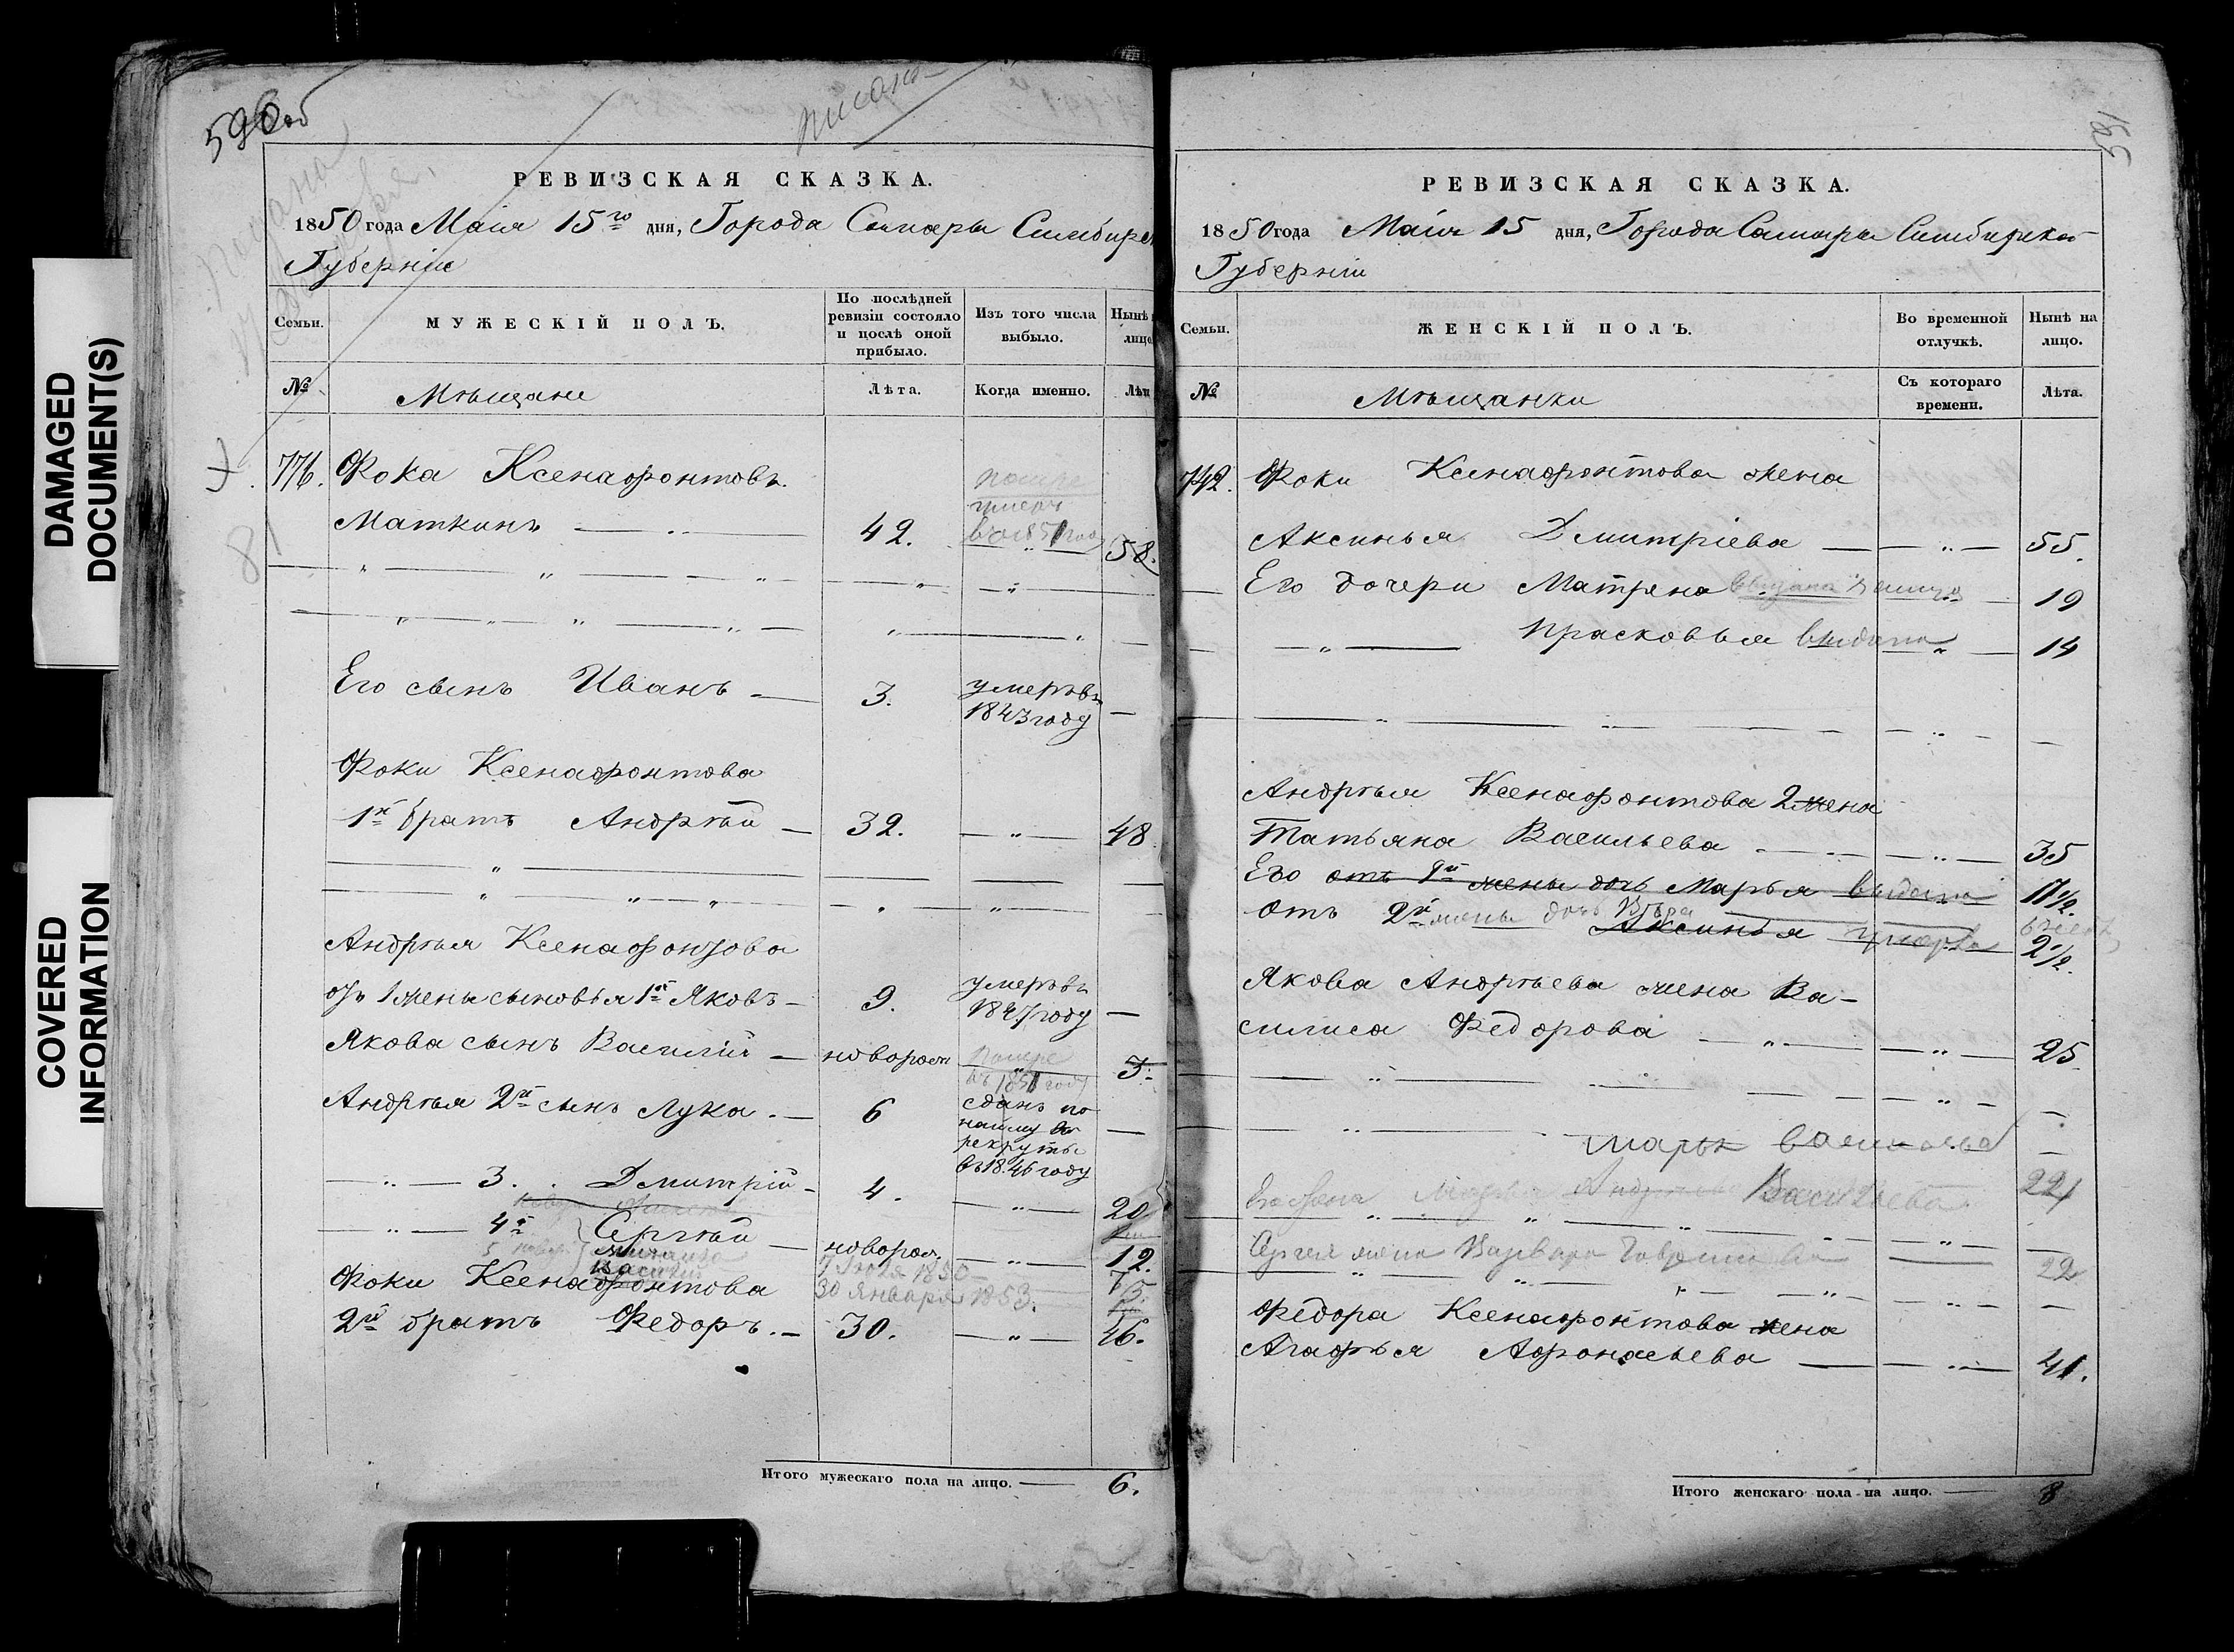 DAMAGED
DOCUMENT(S)
COVERED
INFORMATION
590об
писано
РЕВИЗСКАЯ СКАЗКА.
1850 года Маія 15го дня, Города Самары Симбирск
Губерніи
Семьи.
МУЖЕСКІЙ ПОЛЪ.
По послѣдней ревизіи состояло и послѣ оной прибыло.
Изъ того числа выбыло.
Нынѣ лицо
№
Мѣщане
Лѣта.
Когда именно.
Лѣт
776. Фока Ксенафонтовъ
Маткинъ — 42. умеръ въ 1851 году 58.
81
Его сынъ Иванъ — 3. умеръ въ 1843 году —
Фоки Ксенафонтова
1й братъ Андрѣй — 32. — " — 48
Андрѣя Ксенафонтова
отъ 1 жены сыновья 1й Яковъ — 9. умеръ въ 1847 году —
Якова сынъ Василій — новорож въ 1851 году 3.
Андрѣя 2й сынъ Лука. — 6 сданъ по найму въ рекруты въ 1846 году —
— " — 3. Дмитрій — 4. — " — 20
— " — 4й Сергѣй — новорож. — " — 12.
Василій
30 Января 1853.
Фоки Ксенафонтова
2й братъ Федоръ. — 30. — " — 46.
Итого мужескаго пола на лицо. — 6.
РЕВИЗСКАЯ СКАЗКА.
1850 года Маія 15 дня, Города Самары Симбирской
Губерніи
Семьи.
ЖЕНСКІЙ ПОЛЪ.
Во временной отлучкѣ.
Нынѣ на лицо.
№
Мѣщанки
Съ котораго времени.
Лѣта.
742. Фоки Ксенафонтова жена
Аксинья Дмитріева — " — 55.
Его дочери Матрена выдана в замуж 19
— " — Прасковья выдана 14
Андрѣя Ксенафонтова 2 жена
Татьяна Васильева — " — 35
Его отъ 1й жены дочь Марья выдана 11 1/2.
Отъ 2й жены дочь Вѣра
Аксинья умерла 2 1/2.
Якова Андрѣева жена Ва-
силиса Федорова — " — 25
Марья
Его жена Васильева 22
Сергея жена Варвара 22
Федора Ксенафонтова жена
Агафья Афонасьева — " — 41.
Итого женскаго пола на лицо. — 8